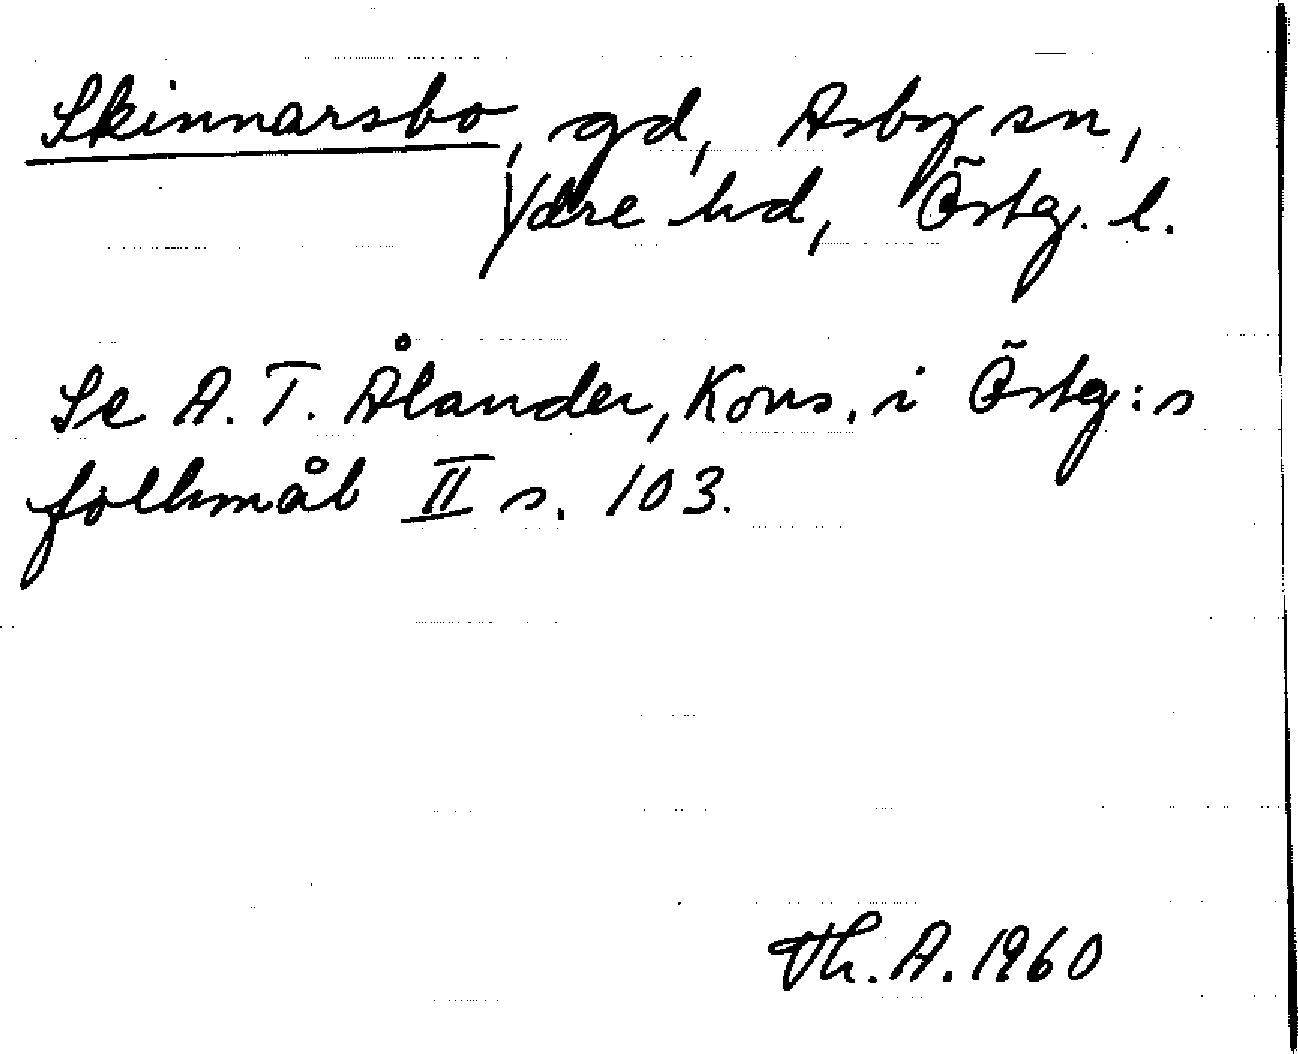 Skinnarsbo, gd, Asby sn,
Ydre hd, Östg. l.
Se A. T. Ålander, Kons. i Östg:s
folkmål II s. 103.
Th. A. 1960